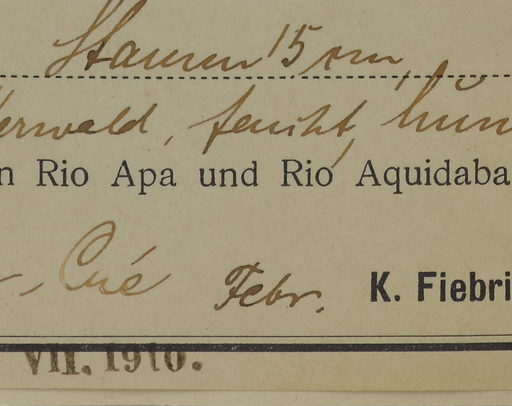 Stamm 15 cm,
erwald, feucht, hum
n Rio Apa und Rio Aquidaba
- Cué Febr. K. Fiebri
VII. 1910.